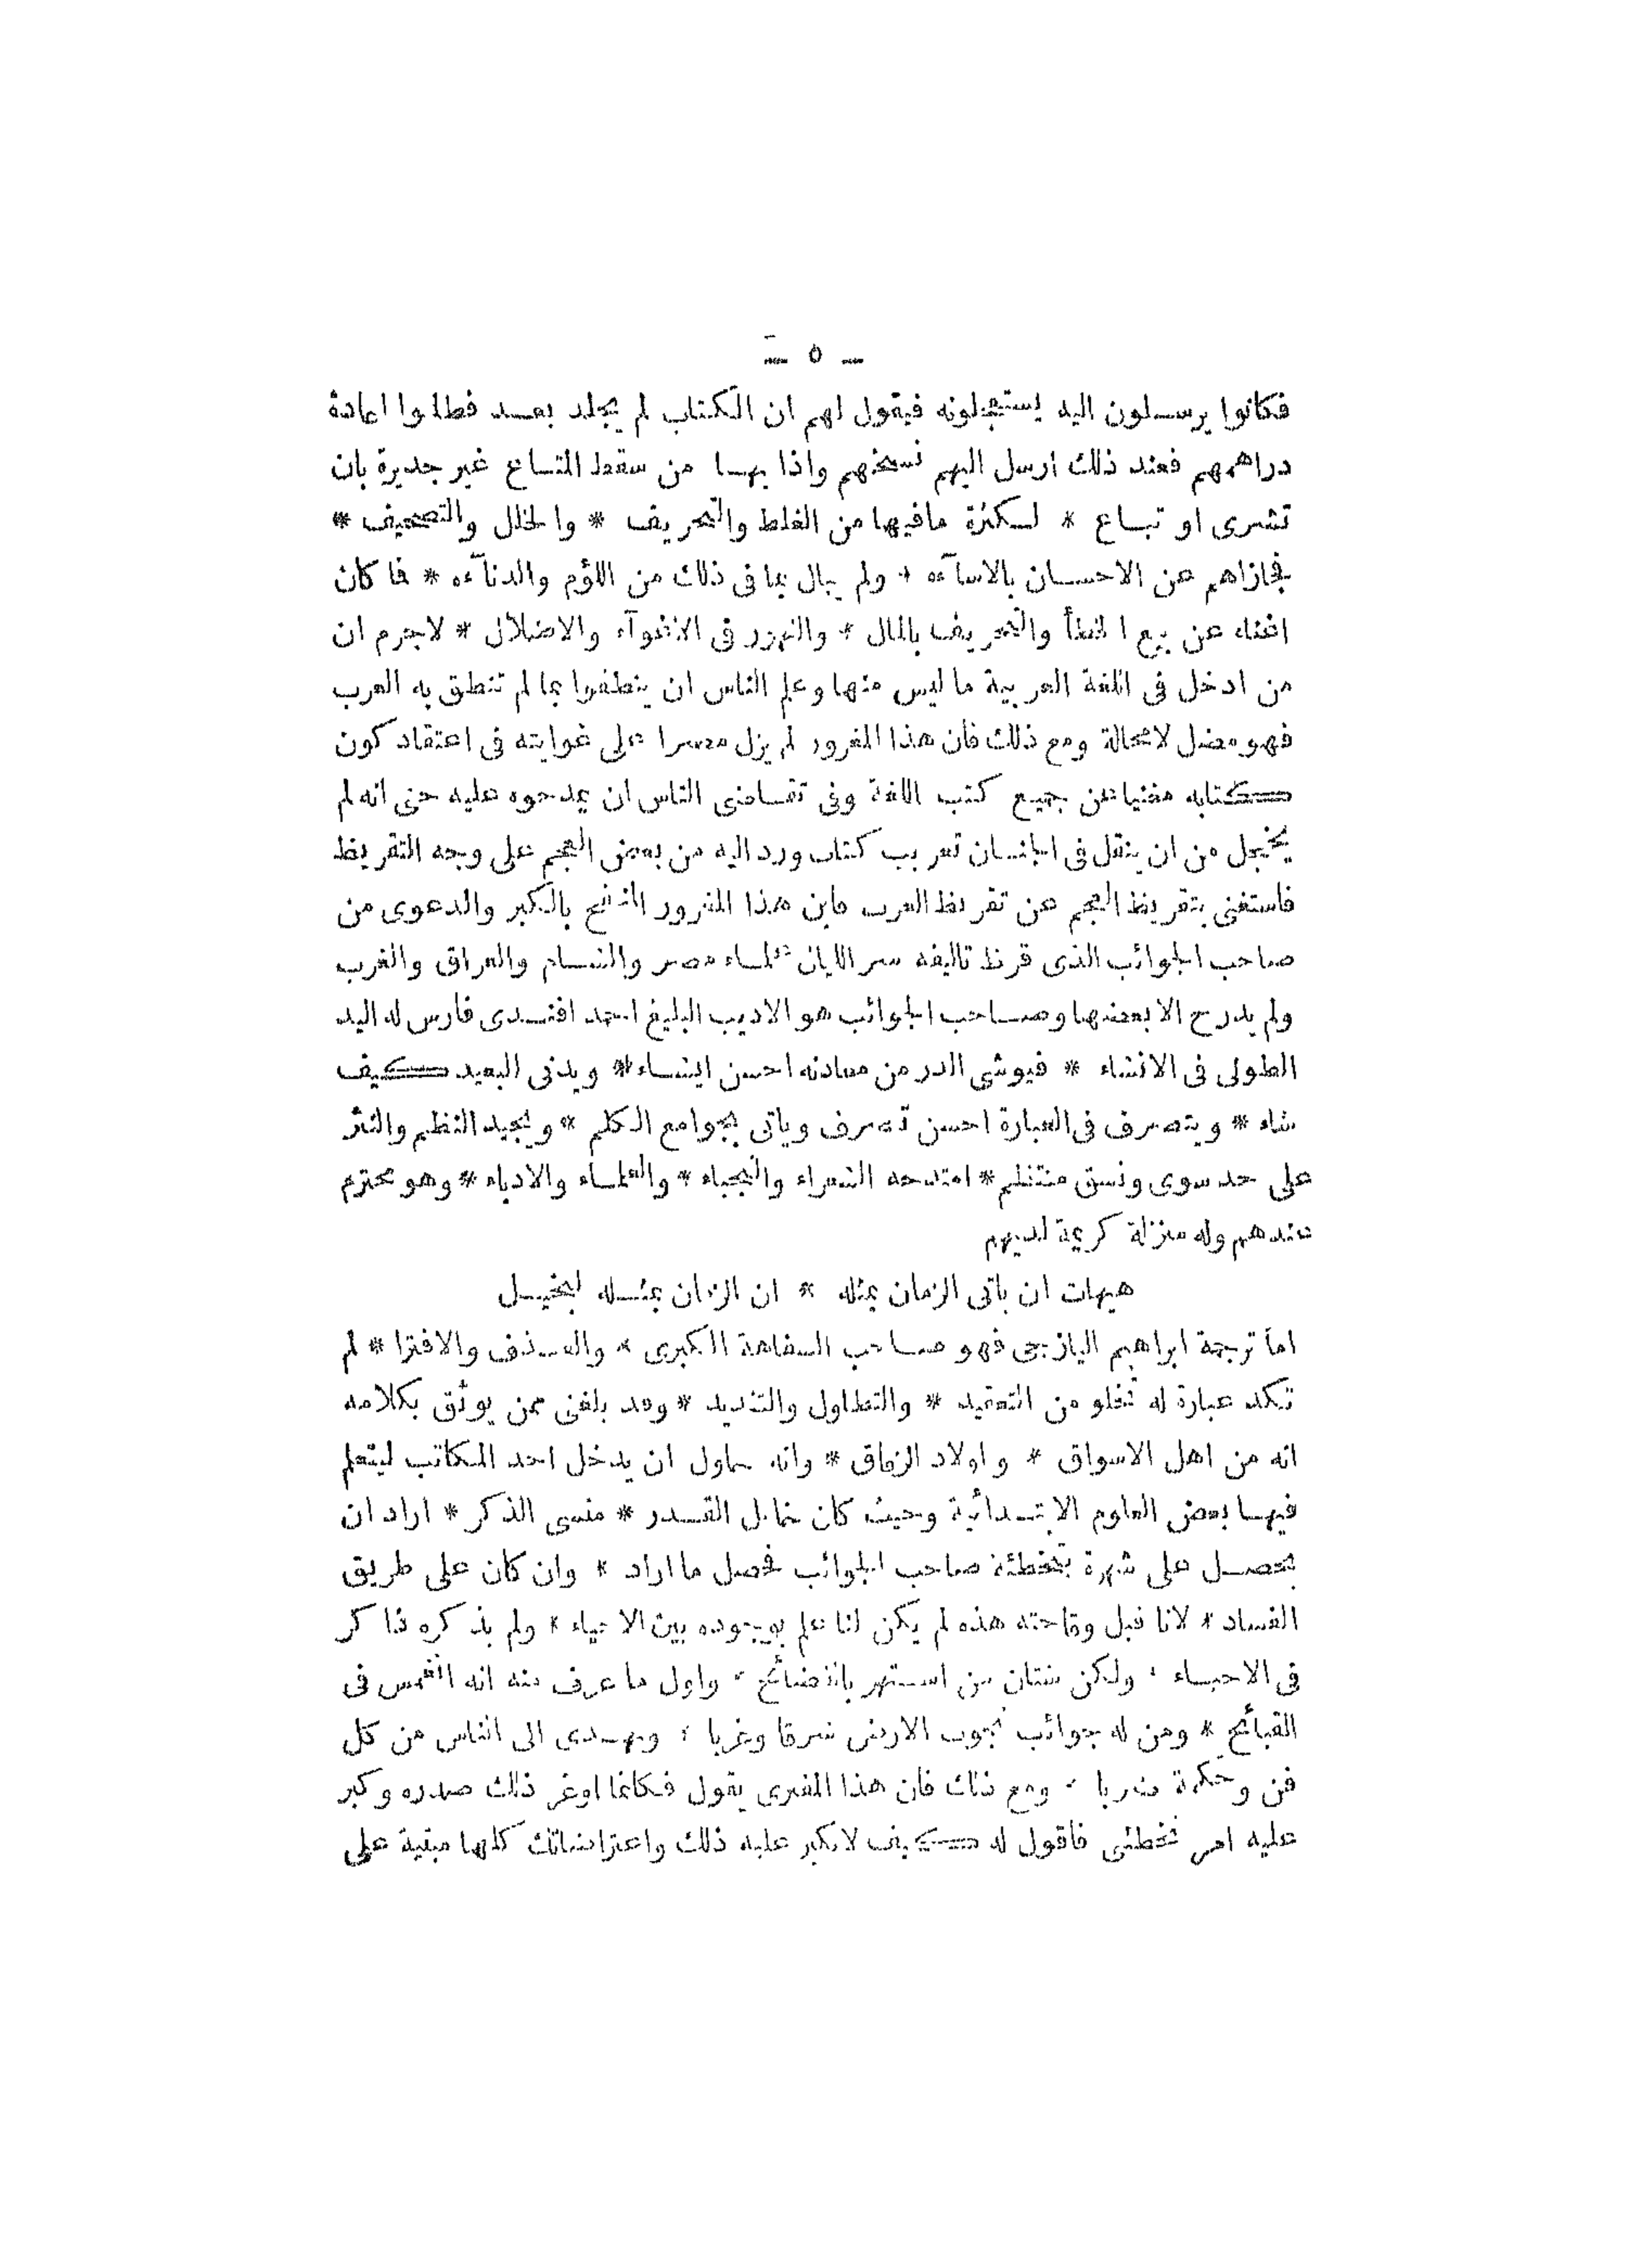 — ٥ —
فكانوا يرسلون اليه يستعجلونه فيقول لهم ان الكتاب لم يجلد بعد فطلبوا اعادة
دراهمهم فعند ذلك ارسل اليهم نسخهم واذا بها من سقط المتاع غير جديرة بان
تشرى او تباع * لكثرة مافيها من الغلط والتحريف * والخلل والتصحيف *
فجازاهم عن الاحسان بالاسآءه * ولم يبال بما فى ذلك من اللؤم والدنآءه * فما كان
اغناه عن بيع الخطأ والتحريف بالمال * والتهور فى الاغوآء والاضلال * لاجرم ان
من ادخل فى اللغة العربية ما ليس منها وعلم الناس ان ينطقوا بما لم تنطق به العرب
فهو مضل لامحالة ومع ذلك فان هذا المغرور لم يزل مصرا على غوايته فى اعتقاد كون
كتابه مغنيا عن جميع كتب اللغة وفى تقاضى الناس ان يمدحوه عليه حتى انه لم
يخجل من ان ينقل فى الجنان تعريب كتاب ورد اليه من بعض العجم على وجه التقريظ
فاستغنى بتقريظ العجم عن تقريظ العرب فاين هذا المغرور المنتفخ بالكبر والدعوى من
صاحب الجوائب الذى قرظ تاليفه سر الليال علماء مصر والشام والعراق والغرب
ولم يدرج الا بعضها وصاحب الجوائب هو الاديب البليغ احمد افندى فارس له اليد
الطولى فى الانشاء * فيوشى الدر من معادنه احسن ايشاء * ويدنى البعيد كيف
شاء * ويتصرف فى العبارة احسن تصرف وياتى بجوامع الكلم * ويجيد النظم والنثر
على حد سوى ونسق منتظم * امتدحه الشعراء والنجباء * والعلماء والادباء * وهو محترم
عندهم وله منزلة كريمة لديهم
هيهات ان ياتى الزمان بمثله * ان الزمان بمثله لبخيل
اما ترجمة ابراهيم اليازجى فهو صاحب السفاهة الكبرى * والقذف والافترا * لم
تكد عبارة له تخلو من التعقيد * والتطاول والتنديد * وقد بلغنى ممن يوثق بكلامه
انه من اهل الاسواق * واولاد الزقاق * وانه حاول ان يدخل احد المكاتب ليتعلم
فيها بعض العلوم الابتدائية وحيث كان خامل القدر * منسى الذكر * اراد ان
يحصل على شهرة بتخطئة صاحب الجوائب فحصل ما اراد * وان كان على طريق
الفساد * لانا قبل وقاحته هذه لم يكن لنا علم بوجوده بين الاحياء * ولم يذكره ذاكر
فى الاحياء * ولكن شتان من اشتهر بالفضائح * واول ما عرف منه انه انغمس فى
القبائح * ومن له جوائب تجوب الارض شرقا وغربا * ويهدى الى الناس من كل
فن وحكمة ضربا * ومع ذلك فان هذا المفترى يقول فكانما اوغر ذلك صدره وكبر
عليه امر تخطئى فاقول له كيف لايكبر عليه ذلك واعتراضاتك كلها مبنية على